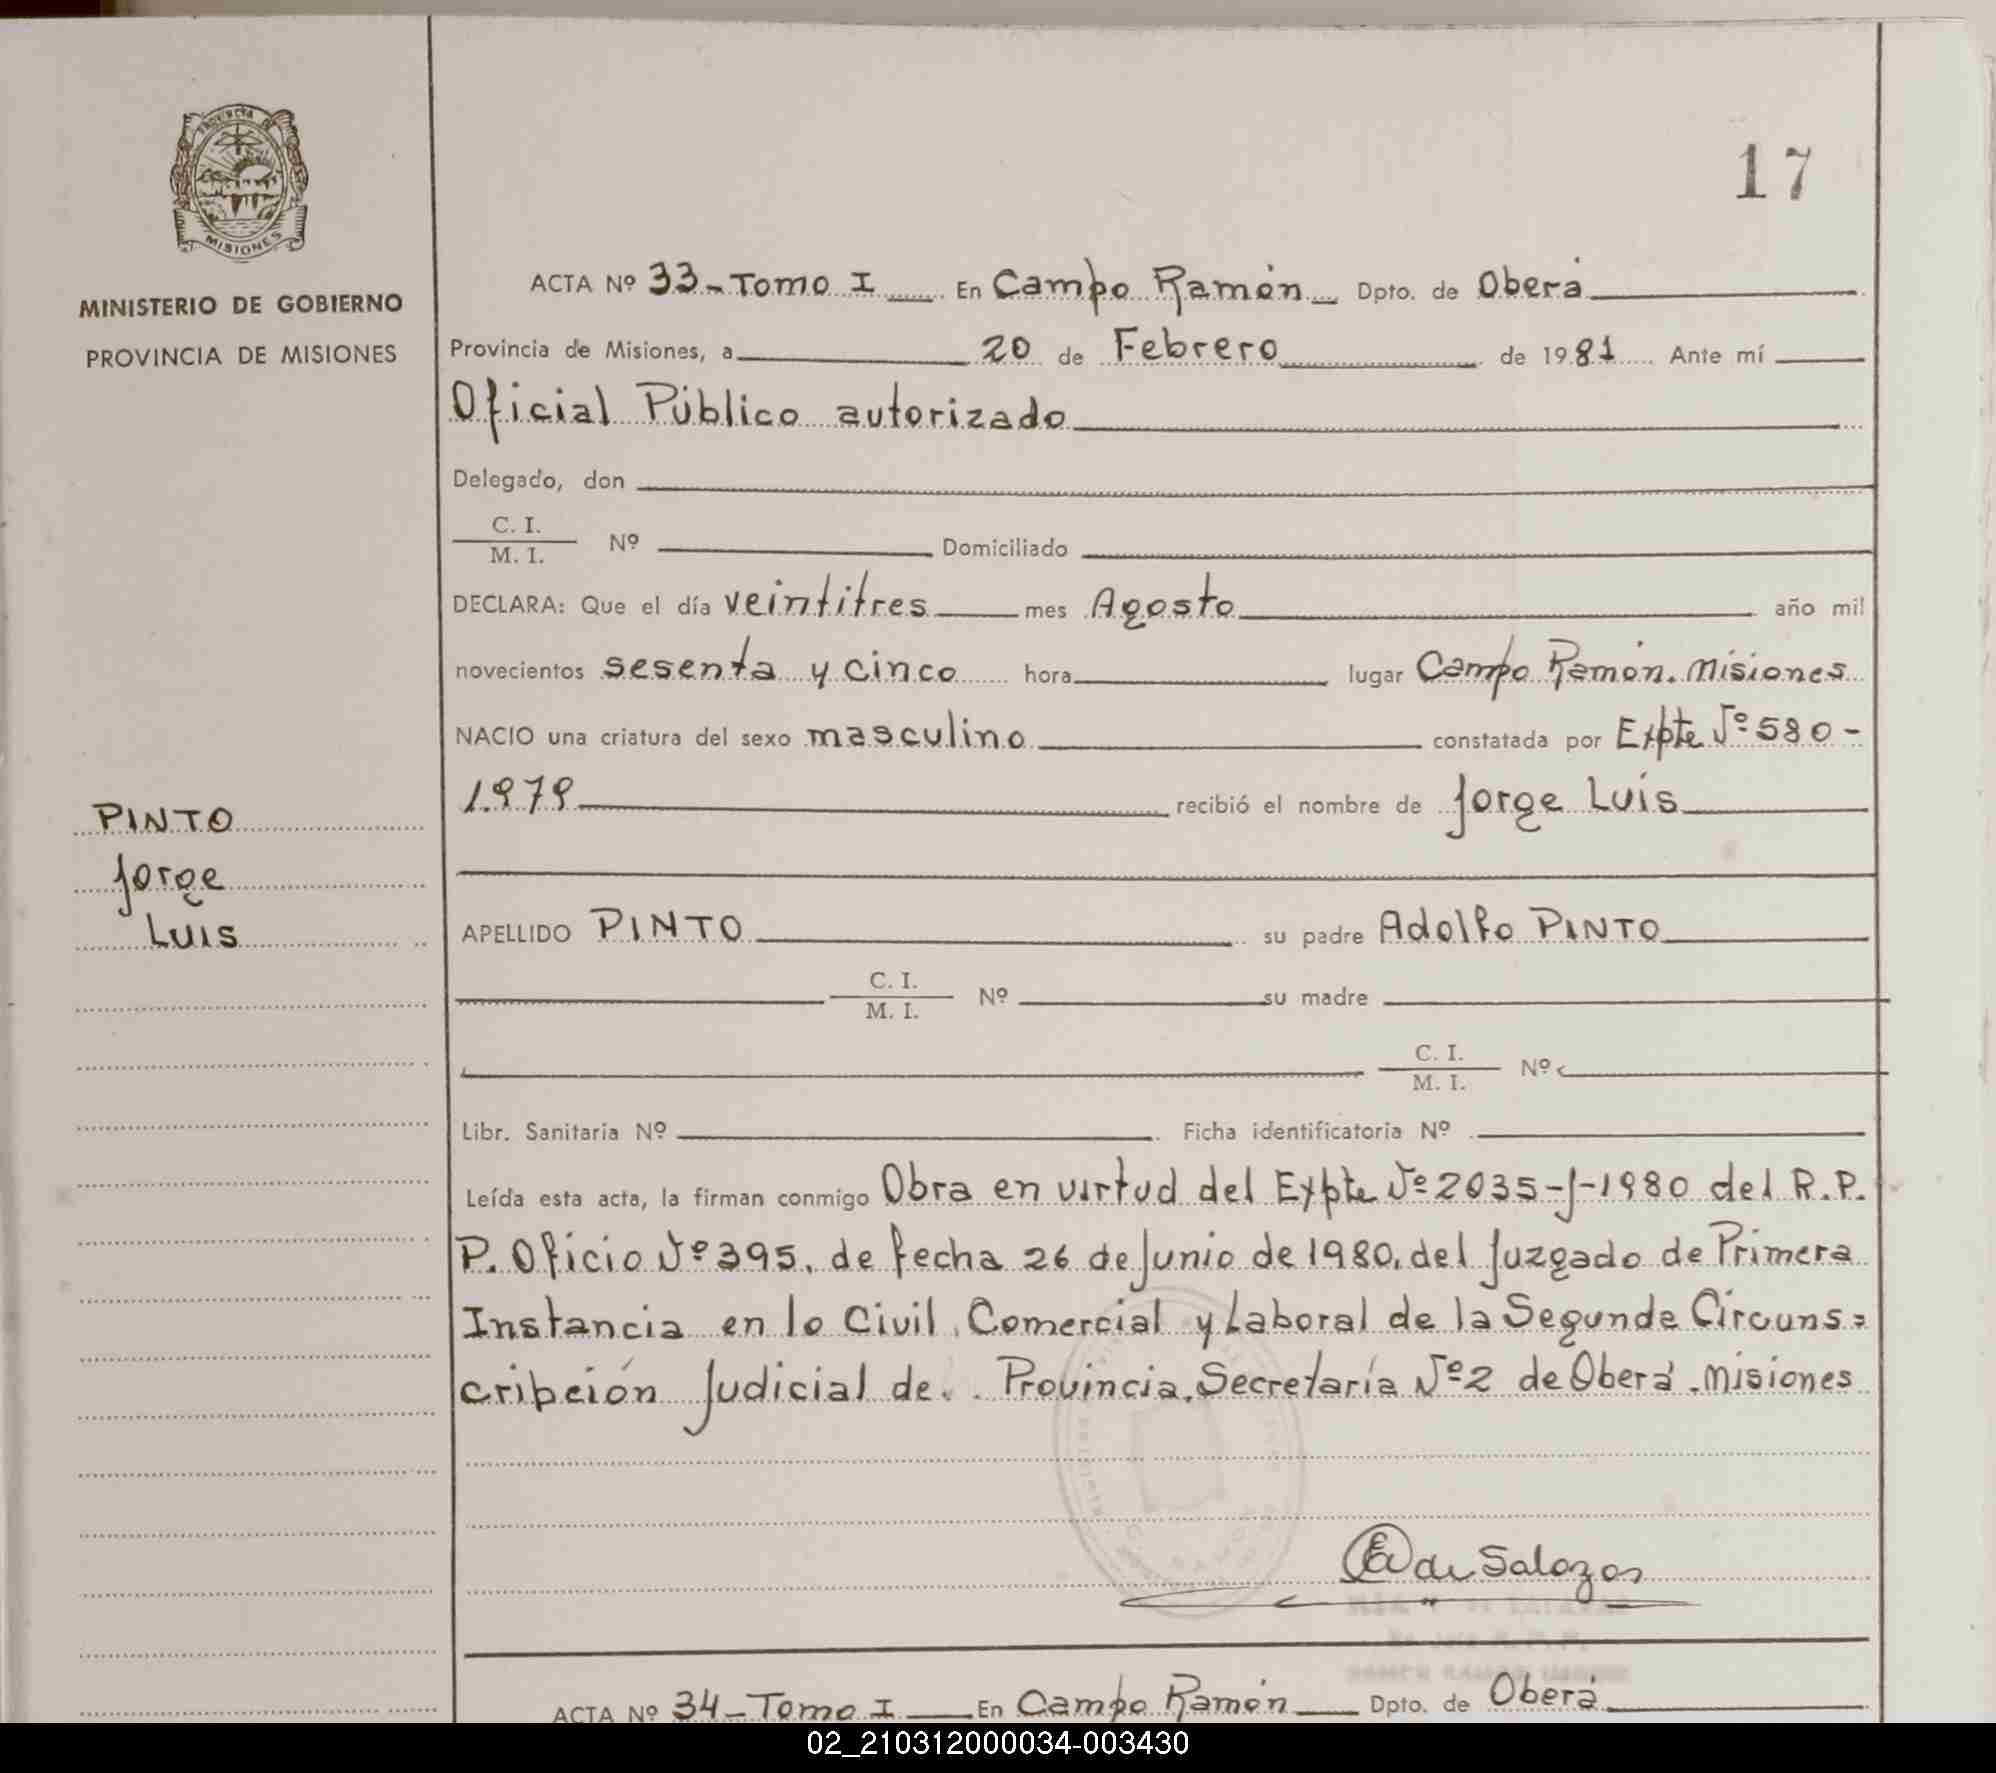 17
PROVINCIA DE
MISIONES
MINISTERIO DE GOBIERNO
PROVINCIA DE MISIONES
ACTA Nº 33 - Tomo I En Campo Ramón Dpto. de Oberá
Provincia de Misiones, a 20 de Febrero de 1981 Ante mí
Oficial Público autorizado
Delegado, don
C. I.
M. I. Nº Domiciliado
DECLARA: Que el día veintitres mes Agosto año mil
novecientos sesenta y cinco hora lugar Campo Ramón. Misiones
NACIO una criatura del sexo masculino constatada por Expte Nº 580 -
1979 recibió el nombre de Jorge Luis
PINTO
Jorge
Luis
APELLIDO PINTO su padre Adolfo PINTO
C. I.
M. I. Nº su madre
C. I.
M. I. Nº
Libr. Sanitaria Nº Ficha identificatoria Nº
Leída esta acta, la firman conmigo Obra en virtud del Expte Nº 2035-J-1980 del R.P.
P. Oficio Nº 395, de fecha 26 de Junio de 1980, del Juzgado de Primera
Instancia en lo Civil, Comercial y Laboral de la Segunda Circuns=
cripción Judicial de Provincia, Secretaría Nº 2 de Oberá. Misiones
de Salazar
ACTA Nº 34 - Tomo I En Campo Ramón Dpto. de Oberá
02_210312000034-003430